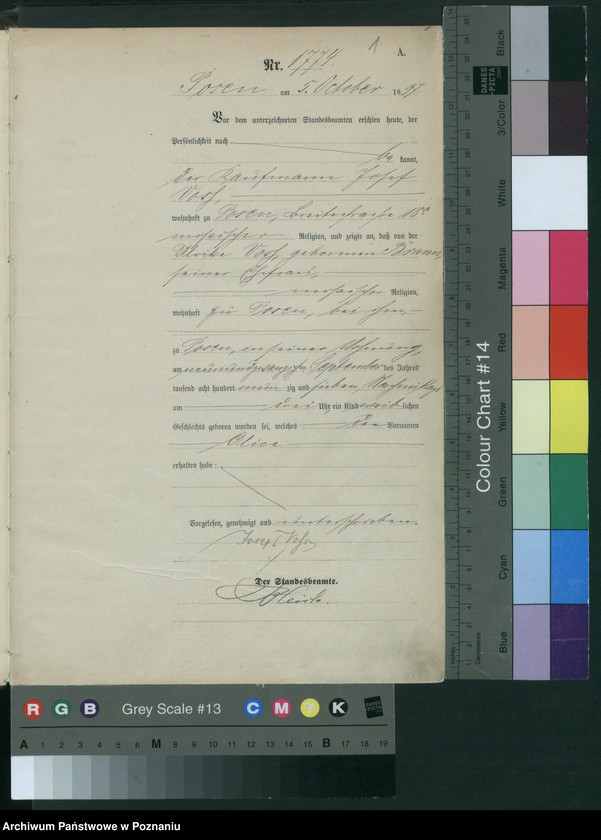 1
A.
Nr. 1774.
Posen am 5. October 1897.
Vor dem unterzeichneten Standesbeamten erschien heute, der
Persönlichkeit nach
be kannt,
der Kaufmann Josef
wohnhaft zu Posen, Breitestraße 18
mosaischer Religion, und zeigte an, daß von der
Ulrike geborenen
seiner Ehefrau,
mosaischer Religion,
wohnhaft zu Posen, bei ihm,
zu Posen, in seiner Wohnung,
am neunundzwanzigsten September des Jahres
tausend acht hundert neun zig und sieben, Nachmittags
um drei Uhr ein Kind weib lichen
Geschlechts geboren worden sei, welches den Vornamen
Alice
erhalten habe:
Vorgelesen, genehmigt und unterschrieben.
Josef
Der Standesbeamte.
DANES PICTA .COM
Colour Chart #14
Black
3/Color
White
Magenta
Red
Yellow
Green
Cyan
Blue
Inches
Centimetres
R G B Grey Scale #13 C M Y K DANES PICTA
A 1 2 3 4 5 6 M 8 9 10 11 12 13 14 15 B 17 18 19
Archiwum Państwowe w Poznaniu